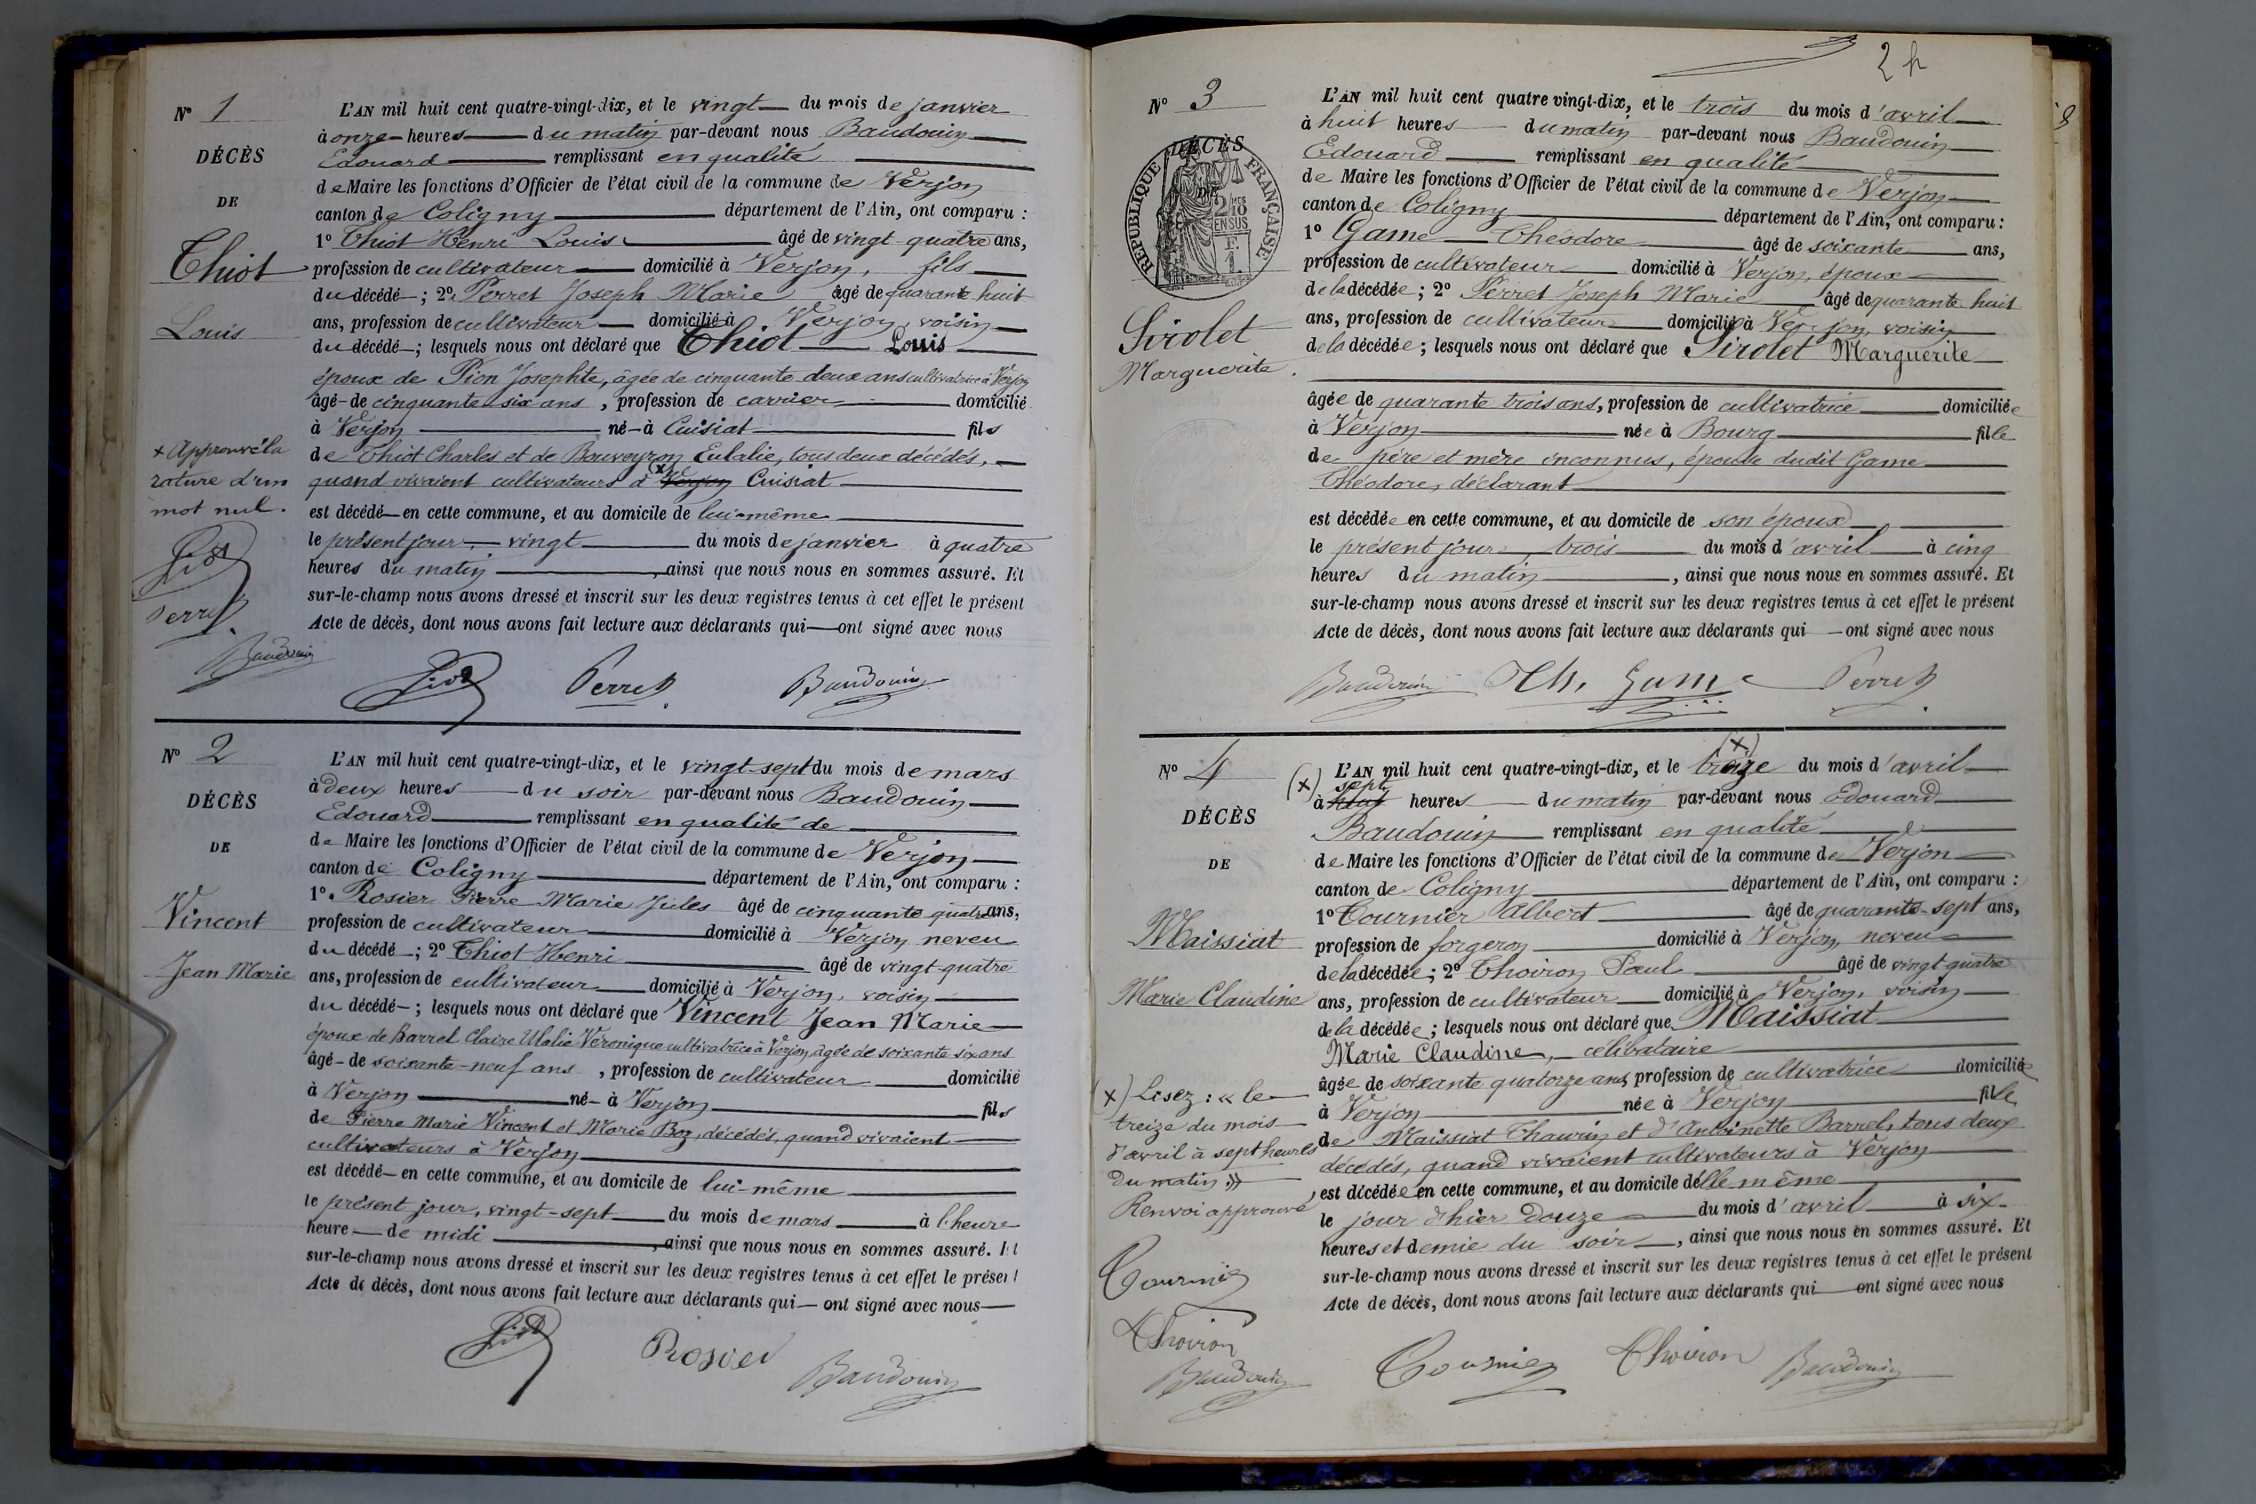 Nº 1
DÉCÈS
DE
Thiot
Louis
L'AN mil huit cent quatre-vingt-dix, et le vingt du mois de janvier
à onze heures du matin par-devant nous Baudouin
Edouard remplissant en qualité
de Maire les fonctions d'Officier de l'état civil de la commune de Verjon
canton de Coligny département de l'Ain, ont comparu :
1º Thiot Henri Louis âgé de vingt-quatre ans,
profession de cultivateur domicilié à Verjon, fils
du décédé ; 2º Perret Joseph Marie âgé de quarante huit
ans, profession de cultivateur domicilié à Verjon, voisin
du décédé ; lesquels nous ont déclaré que Thiot Louis
époux de Pion Josephte, âgée de cinquante deux ans cultivatrice à Verjon
âgé de cinquante six ans, profession de carrier domicilié
à Verjon né à Cuisiat fils
de Thiot Charles et de Bouveyron Eulalie, tous deux décédés,
quand vivaient cultivateurs à (x) Verjon Cuisiat
est décédé en cette commune, et au domicile de lui-même
le présent jour, vingt du mois de janvier à quatre
heures du matin, ainsi que nous nous en sommes assuré. Et
sur-le-champ nous avons dressé et inscrit sur les deux registres tenus à cet effet le présent
Acte de décès, dont nous avons fait lecture aux déclarants qui ont signé avec nous
x Approuvé la
rature d'un
mot nul.
Perret
Baudouin
Perret Baudouin
Nº 2
DÉCÈS
DE
Vincent
Jean Marie
L'AN mil huit cent quatre-vingt-dix, et le vingt-sept du mois de mars
à deux heures du soir par-devant nous Baudouin
Edouard remplissant en qualité de
de Maire les fonctions d'Officier de l'état civil de la commune de Verjon
canton de Coligny département de l'Ain, ont comparu :
1º Rosier Pierre Marie Jules âgé de cinquante quatre ans,
profession de cultivateur domicilié à Verjon neveu
du décédé ; 2º Thiot Henri âgé de vingt-quatre
ans, profession de cultivateur domicilié à Verjon, voisin
du décédé ; lesquels nous ont déclaré que Vincent Jean Marie
époux de Barrel Claire Ulalie Véronique cultivatrice à Verjon, âgée de soixante six ans
âgé de soixante-neuf ans, profession de cultivateur domicilié
à Verjon né à Verjon fils
de Pierre Marie Vincent et Marie Boz, décédés, quand vivaient
cultivateurs à Verjon
est décédé en cette commune, et au domicile de lui-même
le présent jour, vingt-sept du mois de mars à l'heure
heure de midi, ainsi que nous nous en sommes assuré. Et
sur-le-champ nous avons dressé et inscrit sur les deux registres tenus à cet effet le présent
Acte de décès, dont nous avons fait lecture aux déclarants qui ont signé avec nous
Rosier Baudouin
2
Nº 3
DÉCÈS
DE
RÉPUBLIQUE FRANÇAISE
2/10 EN SUS
F. 1.
Sirolet
Marguerite.
L'AN mil huit cent quatre vingt-dix, et le trois du mois d'avril
à huit heures du matin par-devant nous Baudouin
Edouard remplissant en qualité
de Maire les fonctions d'Officier de l'état civil de la commune de Verjon
canton de Coligny département de l'Ain, ont comparu :
1º Game Théodore âgé de soixante ans,
profession de cultivateur domicilié à Verjon, époux
de la décédée ; 2º Perret Joseph Marie âgé de quarante huit
ans, profession de cultivateur domicilié à Verjon, voisin
de la décédée ; lesquels nous ont déclaré que Sirolet Marguerite
âgée de quarante trois ans, profession de cultivatrice domiciliée
à Verjon née à Bourg fille
de père et mère inconnus, épouse dudit Game
Théodore, déclarant
est décédée en cette commune, et au domicile de son époux
le présent jour, trois du mois d'avril à cinq
heures du matin, ainsi que nous nous en sommes assuré. Et
sur-le-champ nous avons dressé et inscrit sur les deux registres tenus à cet effet le présent
Acte de décès, dont nous avons fait lecture aux déclarants qui ont signé avec nous
Baudouin Th. Game Perret
Nº 4
DÉCÈS
DE
Maissiat
Marie Claudine
(x)
L'AN mil huit cent quatre-vingt-dix, et le treize du mois d'avril
(x) sept
à huit heures du matin par-devant nous Edouard
Baudouin remplissant en qualité
de Maire les fonctions d'Officier de l'état civil de la commune de Verjon
canton de Coligny département de l'Ain, ont comparu :
1º Tournier Albert âgé de quarante-sept ans,
profession de forgeron domicilié à Verjon, neveu
de la décédée ; 2º Thoiron Paul âgé de vingt quatre
ans, profession de cultivateur domicilié à Verjon, voisin
de la décédée ; lesquels nous ont déclaré que Maissiat
Marie Claudine, célibataire
âgée de soixante quatorze ans, profession de cultivatrice domiciliée
à Verjon née à Verjon fille
de Maissiat Thaurin et d'Antoinette Barrel, tous deux
décédés, quand vivaient cultivateurs à Verjon
est décédée en cette commune, et au domicile d'elle même
le jour d'hier douze du mois d'avril à six
heures et demie du soir, ainsi que nous nous en sommes assuré. Et
sur-le-champ nous avons dressé et inscrit sur les deux registres tenus à cet effet le présent
Acte de décès, dont nous avons fait lecture aux déclarants qui ont signé avec nous
(x) Lisez : « le
treize du mois
d'avril à sept heures
du matin »
Renvoi approuvé
Tournier
Thoiron
Baudouin
Tournier Thoiron Baudouin